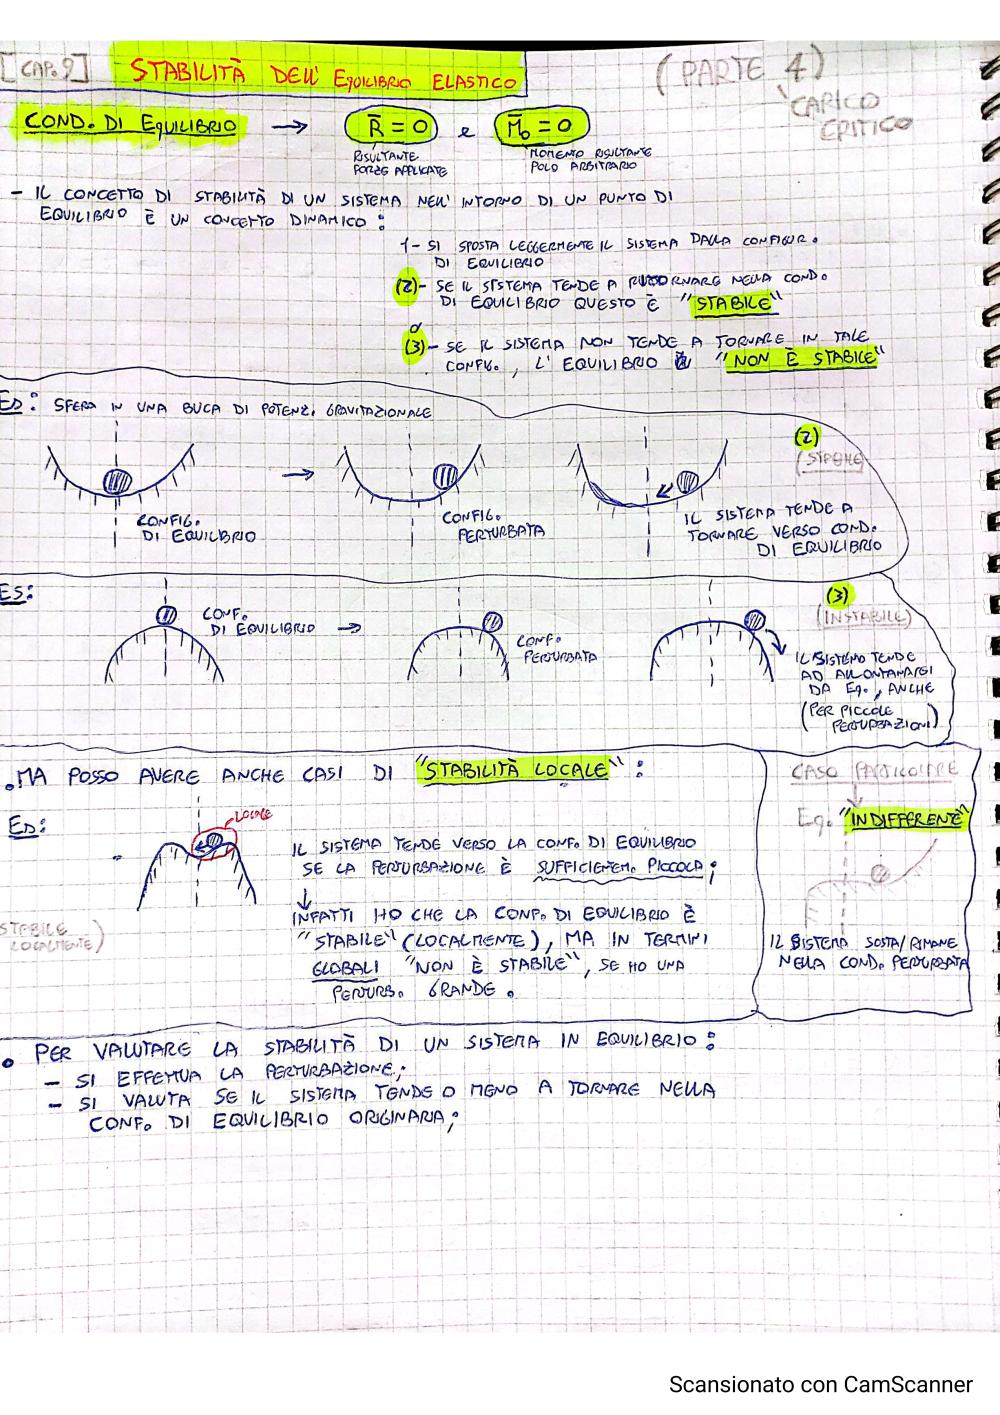 [CAP. 9] STABILITÀ DELL' EQUILIBRIO ELASTICO
(PARTE 4)
"CARICO
CRITICO
COND. DI EQUILIBRIO → R̄ = 0 e M̄o = 0
RISULTANTE
FORZE APPLICATE
MOMENTO RISULTANTE
POLO ARBITRARIO
- IL CONCETTO DI STABILITÀ DI UN SISTEMA NELL' INTORNO DI UN PUNTO DI
EQUILIBRIO È UN CONCETTO DINAMICO:
1- SI SPOSTA LEGGERMENTE IL SISTEMA DALLA CONFIGUR.
DI EQUILIBRIO
(2)- SE IL SISTEMA TENDE A RITORNARE NELLA COND.
DI EQUILIBRIO QUESTO È "STABILE"
o
(3)- SE IL SISTEMA NON TENDE A TORNARE IN TALE
CONFIG., L' EQUILIBRIO "NON È STABILE"
ES: SFERA IN UNA BUCA DI POTENZ. GRAVITAZIONALE
(2)
CONFIG.
DI EQUILIBRIO
→
CONFIG.
PERTURBATA
IL SISTEMA TENDE A
TORNARE VERSO COND.
DI EQUILIBRIO
ES:
CONF.
DI EQUILIBRIO →
CONF.
PERTURBATA
(3)
(INSTABILE)
IL SISTEMA TENDE
AD ALLONTANARSI
DA EQ., ANCHE
(PER PICCOLE
PERTURBAZIONI)
. MA POSSO AVERE ANCHE CASI DI "STABILITÀ LOCALE":
ES:
LOCALE
STABILE
LOCALMENTE)
IL SISTEMA TENDE VERSO LA CONF. DI EQUILIBRIO
SE LA PERTURBAZIONE È SUFFICIENTEM. PICCOLA;
↓
INFATTI HO CHE LA CONF. DI EQUILIBRIO È
"STABILE" (LOCALMENTE), MA IN TERMINI
GLOBALI "NON È STABILE", SE HO UNA
PERTURB. GRANDE.
CASO PARTICOLARE
↓
Eq. "INDIFFERENTE"
IL SISTEMA SOSTA/RIMANE
NELLA COND. PERTURBATA
. PER VALUTARE LA STABILITÀ DI UN SISTEMA IN EQUILIBRIO:
- SI EFFETTUA LA PERTURBAZIONE;
- SI VALUTA SE IL SISTEMA TENDE O MENO A TORNARE NELLA
CONF. DI EQUILIBRIO ORIGINARIA;
Scansionato con CamScanner